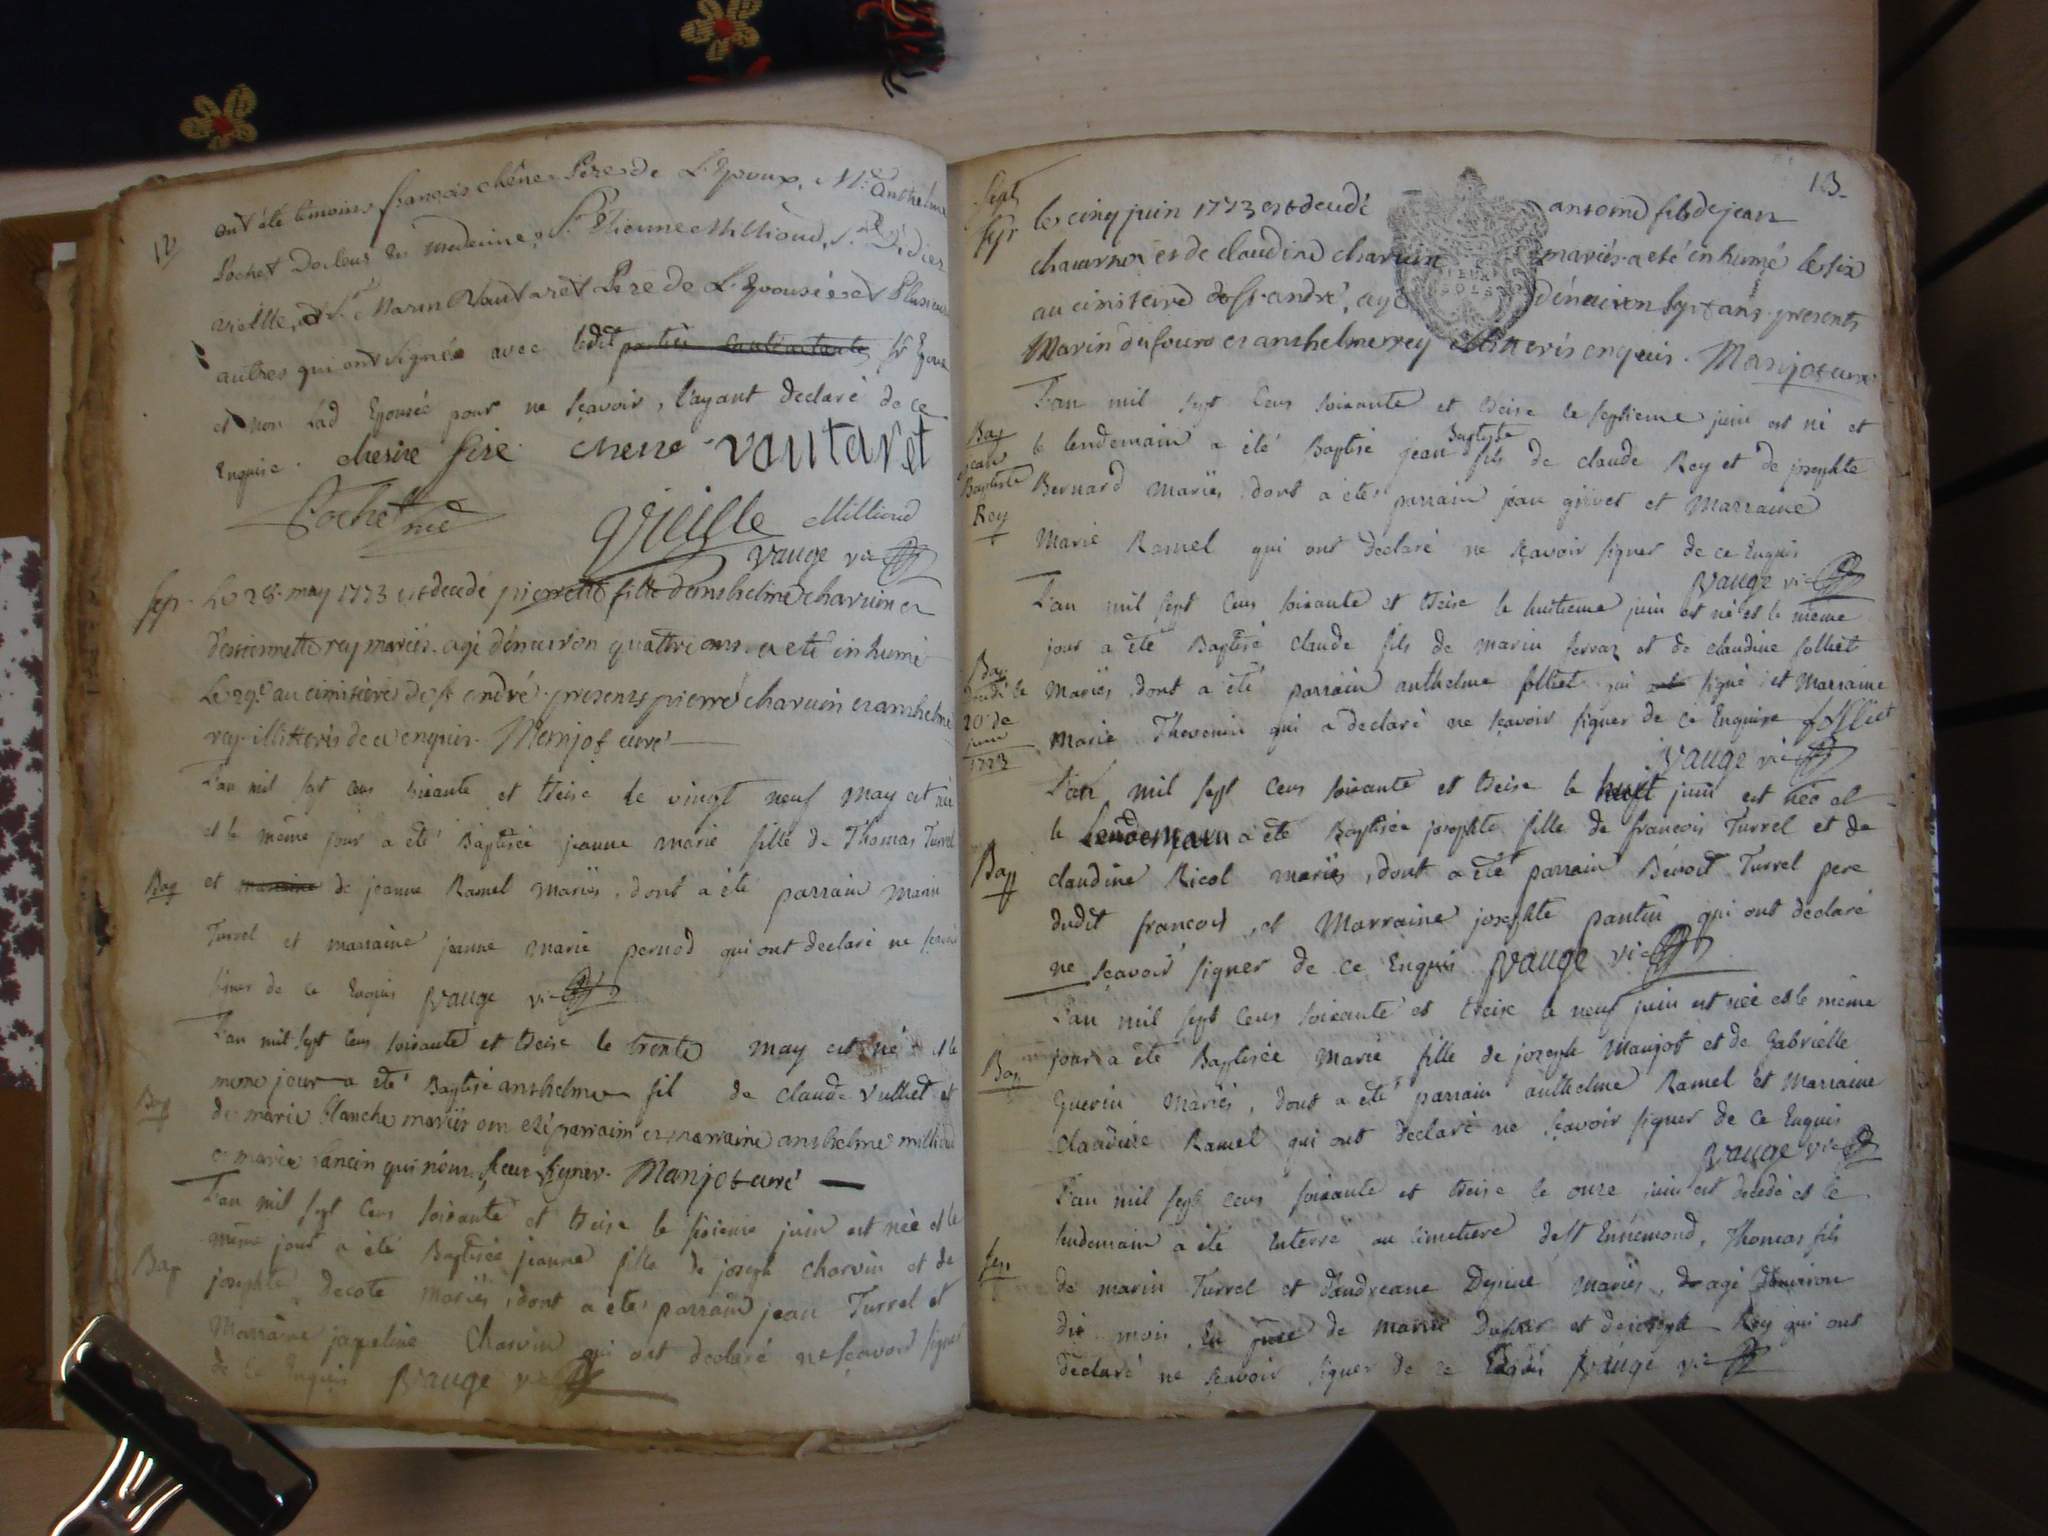 12
ont été temoins françois chêne Pere de L'Epoux, Mr anthelme
Pochet Docteur en medecine, Sr Etienne Millioud, Sr Didier
vieille, et Sr Marin Vautaret Pere de L'Epousée et Plusieurs
autres qui ont signés avec ledit parties contractante Sr Epoux
et non Lad Epousée pour ne sçavoir, l'ayant declaré de ce
Enquise. chene chene vautaret
Pochet md
Vieille Millioud
Vauge vic
sep. Le 28. may 1773 est decedé pierrette fille d'anthelme charuin et
d'estiennette rey mariés. agé d'énuiron quattre ans. a eté inhumé
Le 29e au cimistère de st andré. presents pierre charuin et anthelme
rey. illitteris de ce enquis. Manjot curé
L'an mil sept cens soixante et treise le vingt neuf may est née
et le même jour a été Baptisée jeanne marie fille de Thomas Turrel
Bap
et marraine de jeanne Ramel mariés, dont a été parrain Marin
Turrel et marraine jeanne marie pernod qui ont declaré ne sçavoir
signer de ce Enquis Vauge vic
L'an mil sept cens soixante et treise le trente may est né et le
même jour a été Baptisé anthelme fil de claude vulliet et
Bap
de marie blanche mariés ont été parrain et marraine anthelme millioud
et marie ancin qui n'ont sceu signer. Manjot curé
L'an mil sept cens soixante et treise le sixieme juin est née et le
même jour a été Baptisée jeanne fille de joseph charvin et de
Bap
josephte Decote mariés, dont a été parrain jean Turrel et
Marraine jaqueline Charvin qui ont declaré ne sçavoir signer
de ce Enquis Vauge vic
13
Sept
sepr le cinq juin 1773 est decedé antoine fils de jean
et de claudine charuin mariés a eté inhumé le six
au cimisteire de st andré, agé d'énuiron sept ans. presents
Marin dufour et anthelme rey illitteris enquis. Manjot curé
L'an mil sept cens soixante et treise le septieme juin est né et
Bap
jean
Baptiste
Rey
le lendemain a été Baptisé jean Baptiste fils de claude Rey et de josephte
Bernard Mariés, dont a été parrain jean grivet et Marraine
Marie Ramel qui ont déclaré ne sçavoir signer de ce Enquis
Vauge vic
L'an mil sept cens soixante et treise le huitieme juin est né et le même
jour a été Baptisé claude fils de marin ferraz et de claudine folliet
Bap
decedé le
20 de
juin
1773
Mariés, dont a été parrain anthelme folliet qui a signé et Marraine
Marie Thevenin qui a declaré ne sçavoir signer de ce Enquise folliet
Vauge vic
L'an mil sept cens soixante et treise le huit juin est née et
le Lendemain a été Baptisée josephte fille de françois Turrel et de
Bap
claudine Ricol mariés, dont a été parrain Benoit Turrel pere
dudit françois, et Marraine josephte pantin qui ont declaré
ne sçavoir signer de ce Enquis Vauge vic
L'an mil sept cens soixante et treise le neuf juin est née et le même
jour a été Baptisée Marie fille de joseph Maujot et de Gabrielle
Bap
Guerin Mariés, dont a été parrain anthelme Ramel et Marraine
Claudine Ramel qui ont declaré ne sçavoir signer de ce Enquis
Vauge vic
L'an mil sept cens soixante et treise le onze juin est decedé et le
lendemain a été Enterré au cimetiere de St Ennemond, Thomas fils
sep.
de marin Turrel et d'andreane Mariés, agé d'environ
dix mois, En de marin Dufour et de joseph Rey qui ont
declaré ne sçavoir signer de ce Enquis Vauge vic